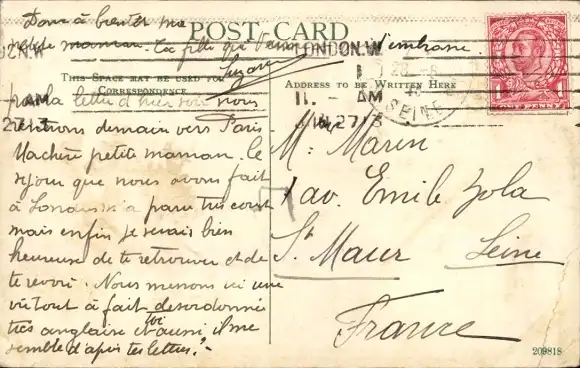 Donc à bientôt ma
petite maman. Ta fille qui t'aime et t'embrasse.
Suzanne
POST CARD
LONDON.W
THIS SPACE MAY BE USED FOR
CORRESPONDENCE
ADDRESS TO BE WRITTEN HERE
11. - AM
27 13
SEINE
ONE PENNY
la lettre d'hier soir nous
rentrons demain vers Paris.
Ma chère petite maman. Le
séjour que nous avons fait
à Londres m'a paru très court
mais enfin je serais bien
heureuse de te retrouver et de
te revoir. Nous menons ici une
vie tout à fait desordonnée
très anglaise toi aussi il me
semble d'après tes lettres.
M. Marin
7 av. Emile Zola
St Maur Seine
France
209818